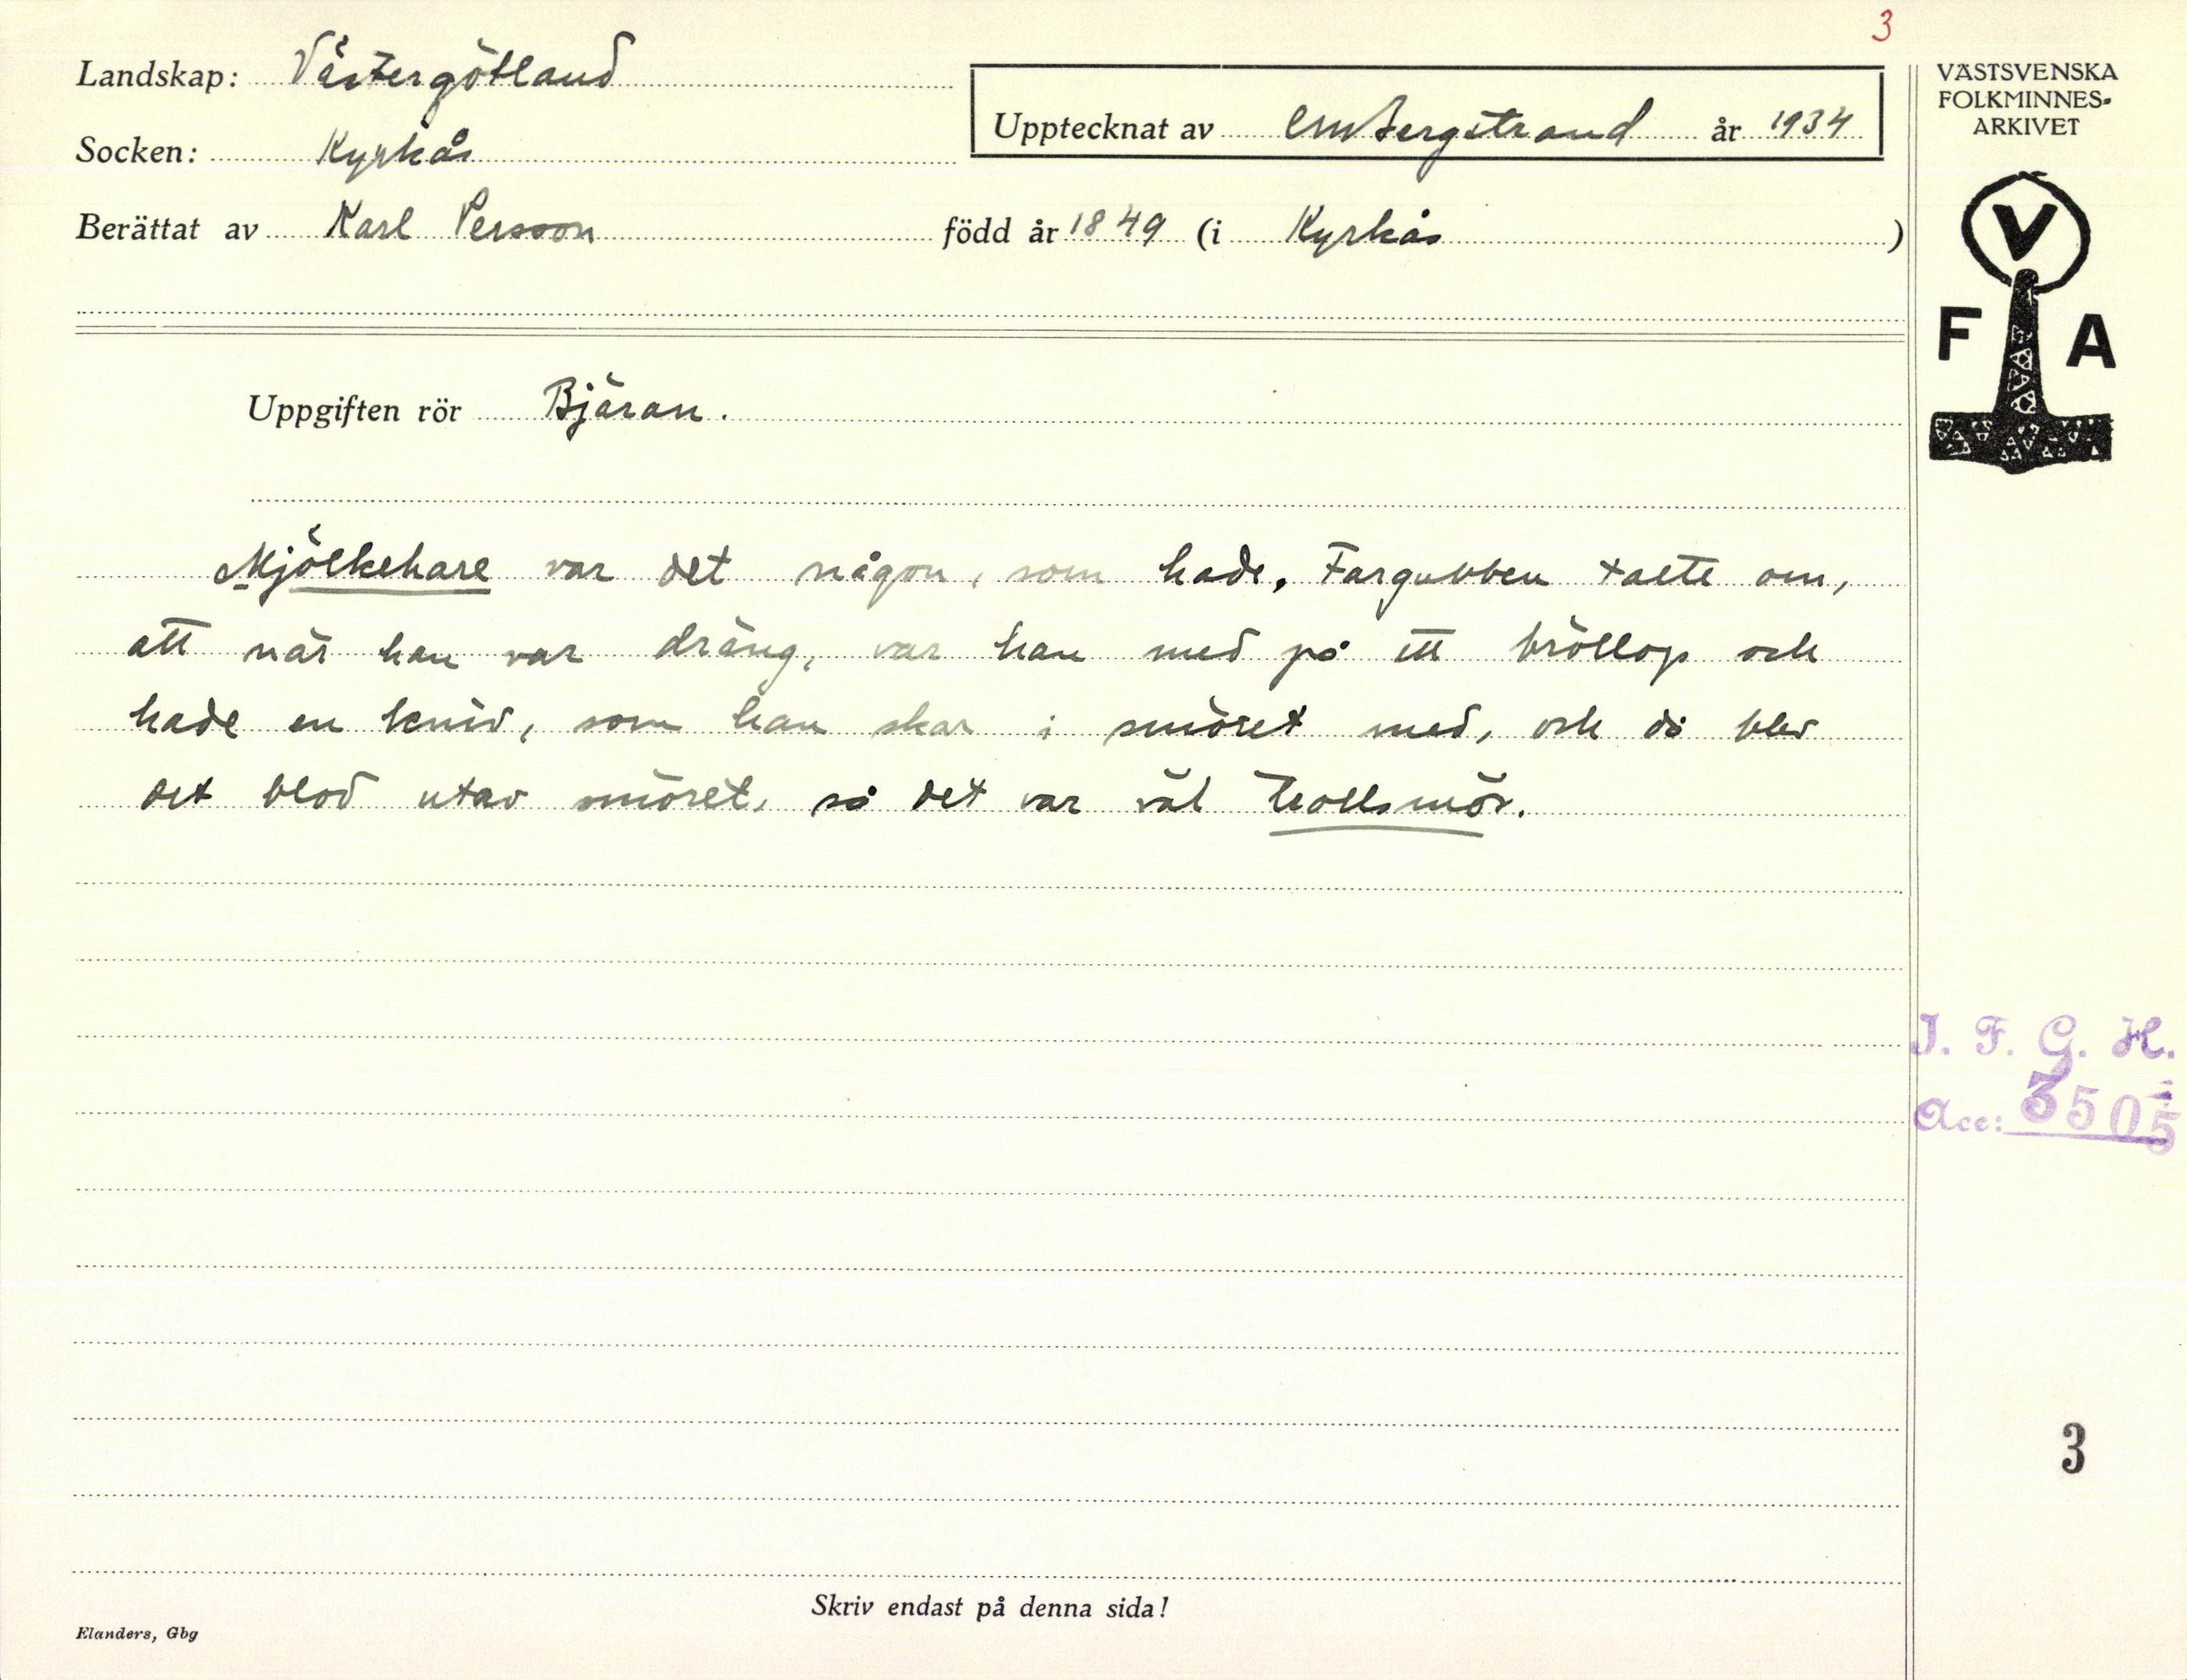 3
Landskap: Västergötland
VÄSTSVENSKA
FOLKMINNES-
ARKIVET
Upptecknat av CMBergstrand år 1934
Socken: Kyrkås
Berättat av Karl Persson född år 1849 (i Kyrkås)
V
F A
Uppgiften rör Bjäran.
Mjölkehare var det någon, som hade. Fargubben talte om,
att när han var dräng, var han med på ett bröllop och
hade en kniv, som han skar i smöret med, och då blev
det blod utav smöret, så det var väl trollsmör.
I. F. G. H.
Acc: 3505
3
Skriv endast på denna sida!
Elanders, Gbg